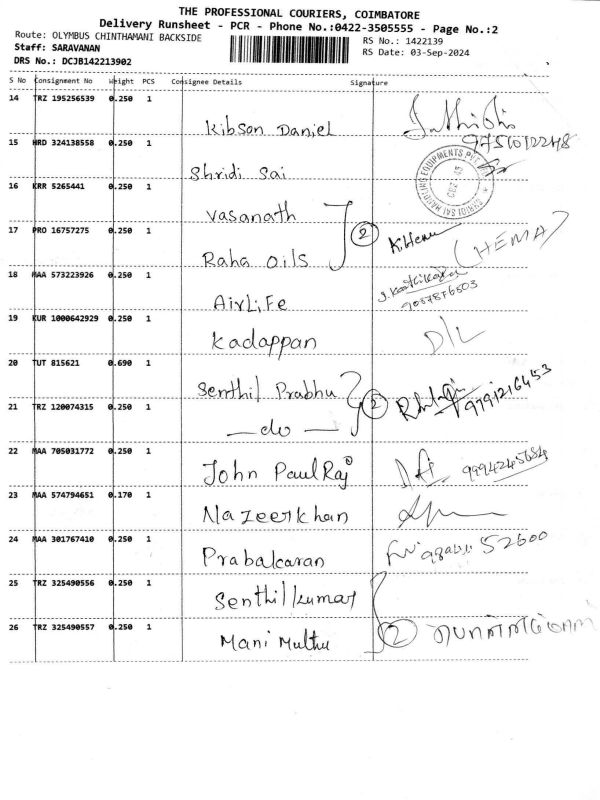 THE PROFESSIONAL COURIERS, COIMBATORE
Delivery Runsheet - PCR - Phone No.:0422-3505555 - Page No.:2
Route: OLYMBUS CHINTHAMANI BACKSIDE
RS No.: 1422139
Staff: SARAVANAN
RS Date: 03-Sep-2024
DRS No.: DCJB142213902
S No Consignment No Weight PCS Consignee Details Signature
14 TRZ 195256539 0.250 1
Kibson Daniel
9751012248
15 HRD 324138558 0.250 1
Shridi Sai
16 KRR 5265441 0.250 1
Vasanath
17 PRO 16757275 0.250 1
Raha oils
2 K.Hema (HEMA)
18 MAA 573223926 0.250 1
AirLiFe
9087876503
19 KUR 1000642929 0.250 1
Kadappan
D/L
20 TUT 815621 0.690 1
Senthil Prabhu
21 TRZ 120074315 0.250 1
— do —
2 9791216453
22 MAA 705031772 0.250 1
John PaulRaj
9994245684
23 MAA 574794651 0.170 1
Nazeerkhan
24 MAA 301767410 0.250 1
Prabakaran
52600
25 TRZ 325490556 0.250 1
Senthil kumar
26 TRZ 325490557 0.250 1
Mani Muthu
2